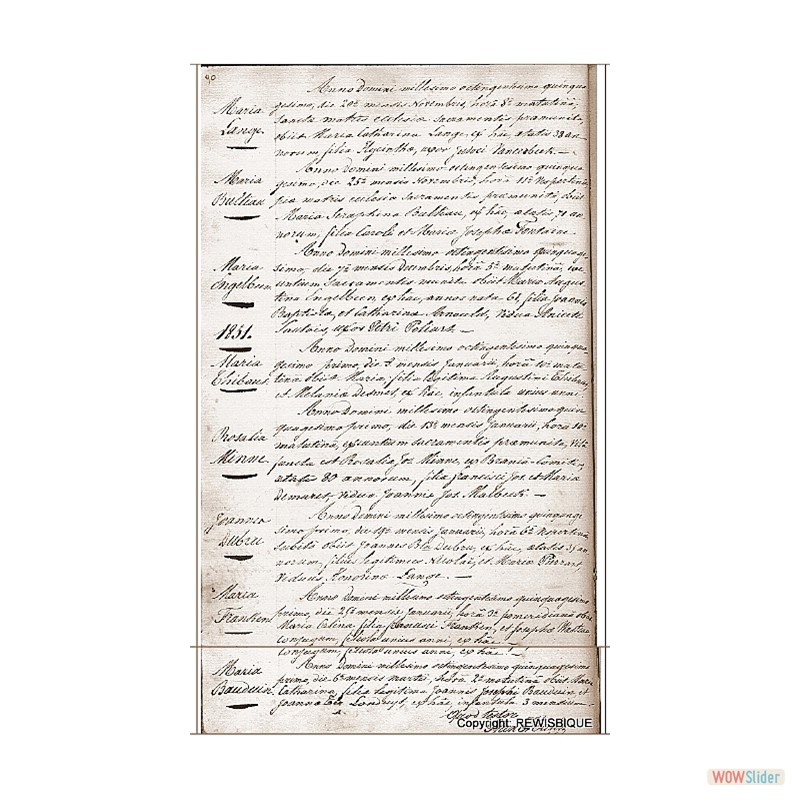 90
Maria
Lange.
Anno Domini millesimo octingentesimo quinqua
gesimo, die 20ª mensis Novembris, horâ 5ª matutinâ,
sanctæ matris ecclesiæ sacramentis præmunita,
obiit Maria Catharina Lange, ex hac, ætatis 38 an
norum, filia Hyacinthæ, uxor Vanderbeck. —
Maria
Bulteau
Anno Domini millesimo octingentesimo quinqua
gesimo, die 25ª mensis Novembris, horâ 11ª Vespertina
piæ matris ecclesiæ Sacramentis præmunita, obiit
Maria Seraphina Bulteau, ex hac, ætatis, 71 an
norum, filia Caroli et Mariæ Josephæ Fontaine.
Maria
Engelbeen
Anno Domini millesimo octingentesimo quinquage
simo, die 7ª mensis Decembris, horâ 5ª matutinâ, exe
untium Sacramentis munita obiit Maria Augus
tina Engelbeen, ex hac, annos nata 61, filia Joannis
Baptistæ, et Catharinæ Arnoulet, vidua
uxor Petri Poliart. —
1851.
Maria
Thibaut.
Anno Domini millesimo octingentesimo quinqua
gesimo primo, die mensis Januarii, horâ matu
tinâ obiit Maria, filia legitima Augustini
et Melaniæ Desmet, ex hac, infantula unius anni
Rosalia
Minne.
Anno Domini millesimo octingentesimo quin
quagesimo primo, die 13ª mensis Januarii, horâ 10ª
matutinâ, exeuntium sacramentis præmunita,
functa est Rosalia Jos. Minne, ex Braniâ-Comitis,
ætatis 80 annorum, filia francisci Jos. et Maria
Demuret, vidua Joannis Jos. Halbeck. —
Joannes
Dubru
Anno Domini millesimo octingentesimo quinquage
simo primo, die 19ª mensis Januarii, horâ 6ª Vespertina
subitâ obiit Joannes Bta Dubru, ex hac, ætatis 51 an
norum, filius legitimus Nicolai, et Mariæ
viduus Honorinæ Lange. —
Maria
Franken
Anno Domini millesimo octingentesimo quinquagesimo
primo, die 25ª mensis Januarii, horâ 3ª pomeridiana obiit
Maria Celina filia francisci Franken, et Josephæ
conjugum, filiola unius anni, ex hac.
conjugum, filiola unius anni, ex hac.
Maria
Bauduin.
Anno Domini millesimo octingentesimo quinquagesimo
primo, die 6ª mensis martii, horâ 2ª matutinâ obiit Maria
Catharina, filia legitima Joannis Josephi Bauduin et
Joannæ Londuyt, ex hâc, infantula 3 mensium.
Quod testor
Copyright: REWISBIQUE
WOWSlider